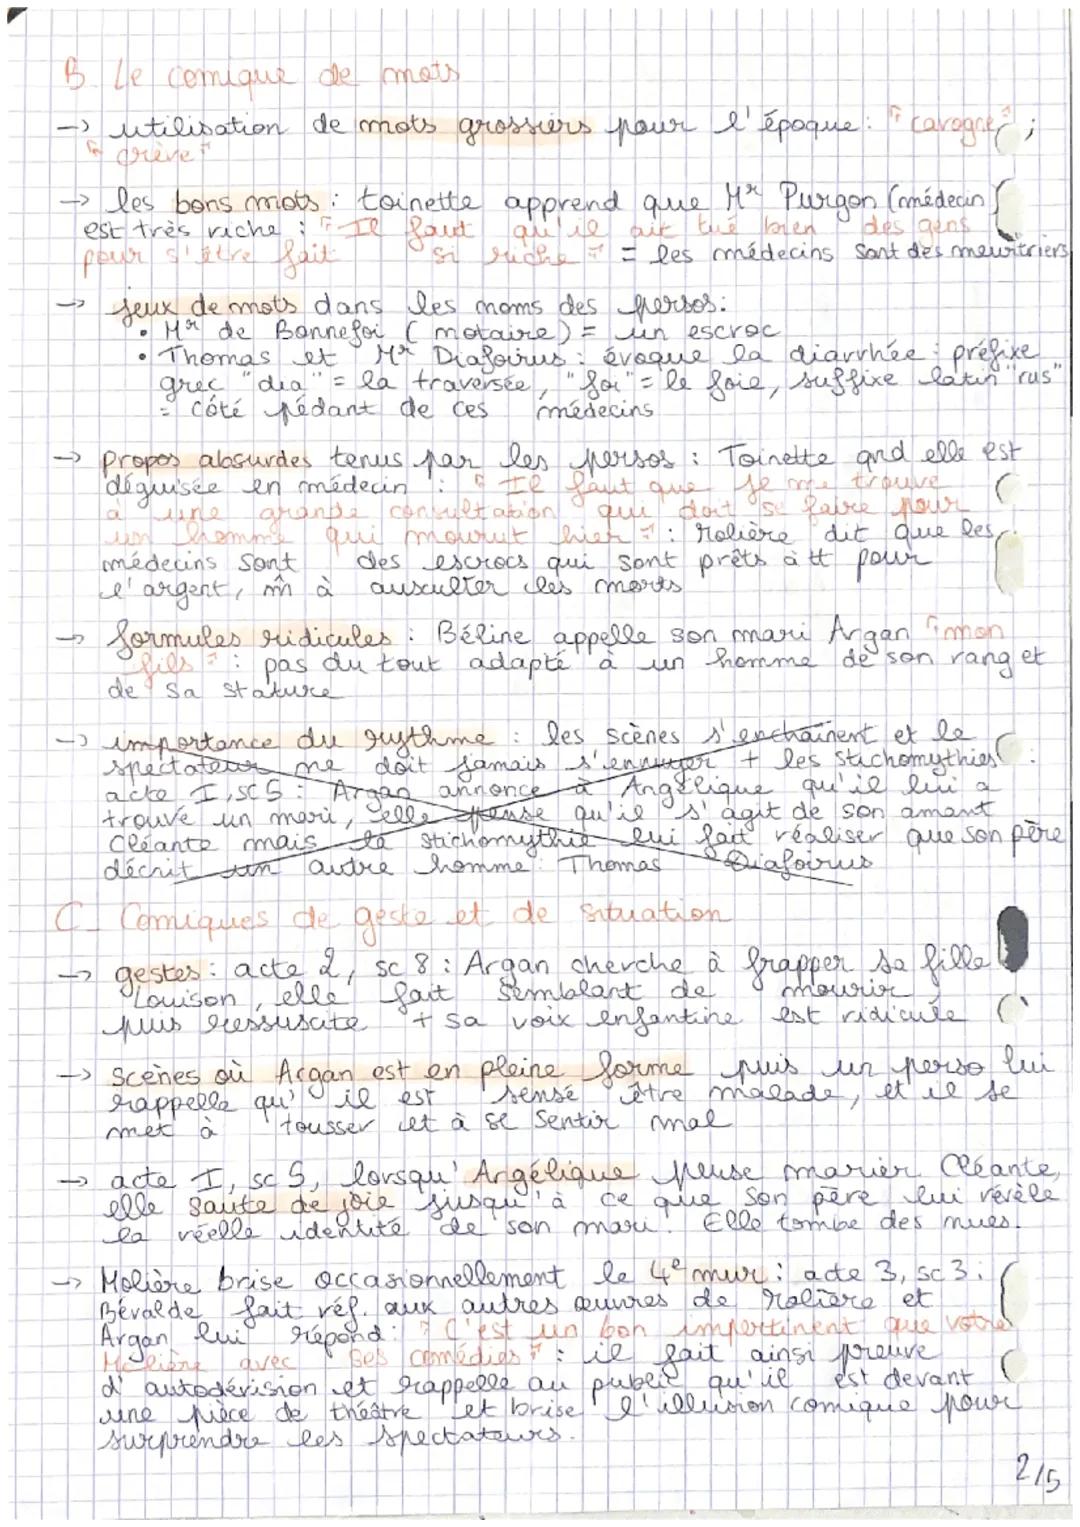 B. Le comique de mots
-> utilisation de mots grossiers pour l'époque : "carogne" ;
"crève"
-> les bons mots : toinette apprend que Mr Purgon (médecin)
est très riche : "Il faut qu'il ait tué bien des gens
pour s'être fait si riche" = les médecins sont des meurtriers
-> jeux de mots dans les noms des persos :
• Mr de Bonnefoi (notaire) = un escroc
• Thomas et Mr Diafoirus : évoque la diarrhée : préfixe
grec "dia" = la traversée, "foi" = le foie, suffixe latin "rus"
= côté pédant de ces médecins
-> propos absurdes tenus par les persos : Toinette qnd elle est
déguisée en médecin : "Il faut que je me trouve
à une grande consultation qui doit se faire pour
un homme qui mourut hier" : Molière dit que les
médecins sont des escrocs qui sont prêts à tt pour
l'argent, m̂ à ausculter les morts
-> formules ridicules : Béline appelle son mari Argan "mon
fils" : pas du tout adapté à un homme de son rang et
de sa stature
-> importance du rythme : les scènes s'enchaînent et le
spectateur ne doit jamais s'ennuyer + les stichomythies :
acte I, sc 5 : Argan annonce à Angélique qu'il lui a
trouvé un mari, elle pense qu'il s'agit de son amant
Cléante mais la stichomythie lui fait réaliser que son père
décrit un autre homme : Thomas Diafoirus
C_ Comiques de geste et de situation
-> gestes : acte 2, sc 8 : Argan cherche à frapper sa fille
Louison, elle fait semblant de mourir
puis ressuscite + sa voix enfantine est ridicule
-> scènes où Argan est en pleine forme puis un perso lui
rappelle qu'il est sensé être malade, et il se
met à tousser et à se sentir mal
-> acte I, sc 5, lorsqu'Angélique pense marier Cléante,
elle saute de joie jusqu'à ce que son père lui révèle
la réelle identité de son mari. Elle tombe des nues.
-> Molière brise occasionnellement le 4e mur : acte 3, sc 3 :
Béralde fait réf. aux autres œuvres de Molière et
Argan lui répond : "C'est un bon impertinent que votre
Molière avec ses comédies" : il fait ainsi preuve
d'autodérision et rappelle au public qu'il est devant
une pièce de théâtre et brise l'illusion comique pour
surprendre les spectateurs.
2/5